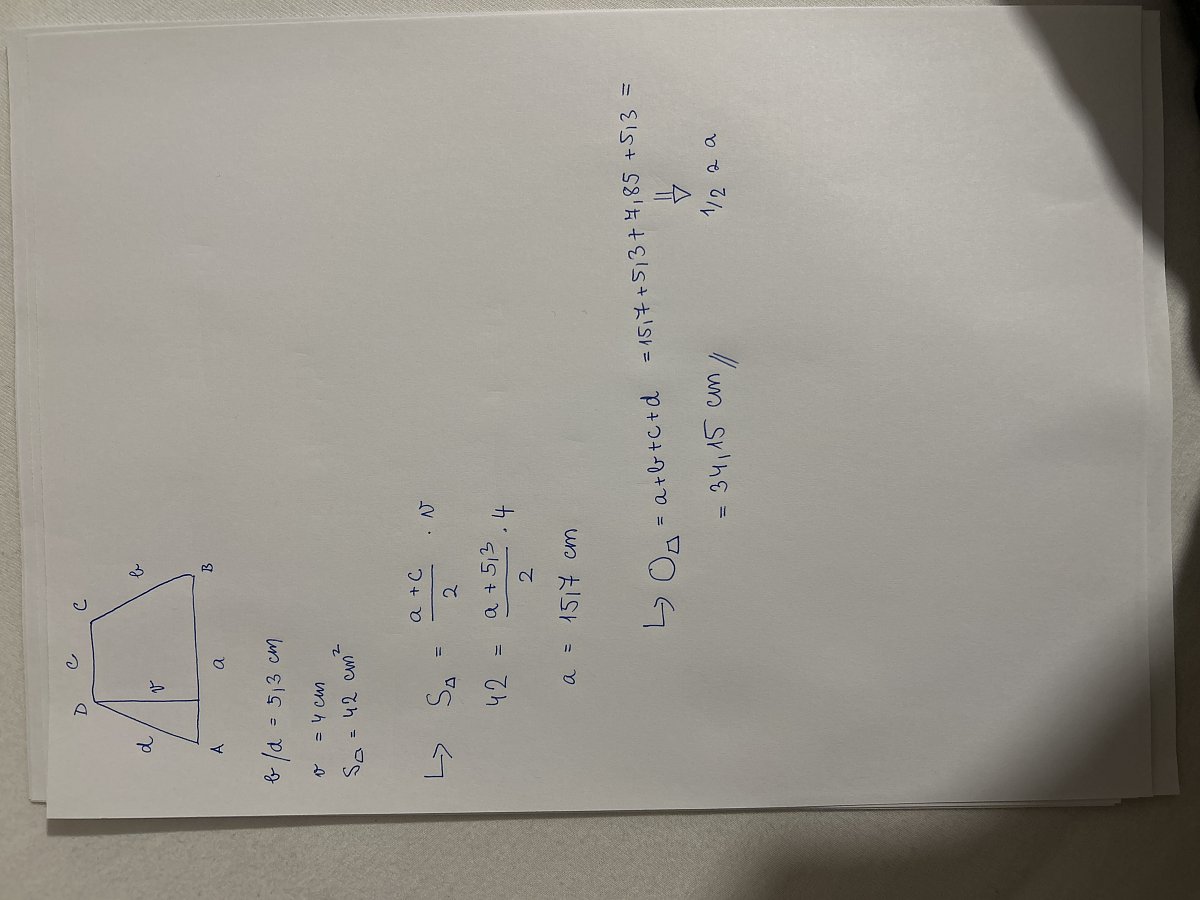 D c C
d v b
A a B
b/d = 5,3 cm
v = 4 cm
S△ = 42 cm²
↳ S△ = (a+c)/2 · v
42 = (a+5,3)/2 · 4
a = 15,7 cm
↳ O△ = a+b+c+d = 15,7+5,3+7,85+5,3 =
⇓
1/2 z a
= 34,15 cm//